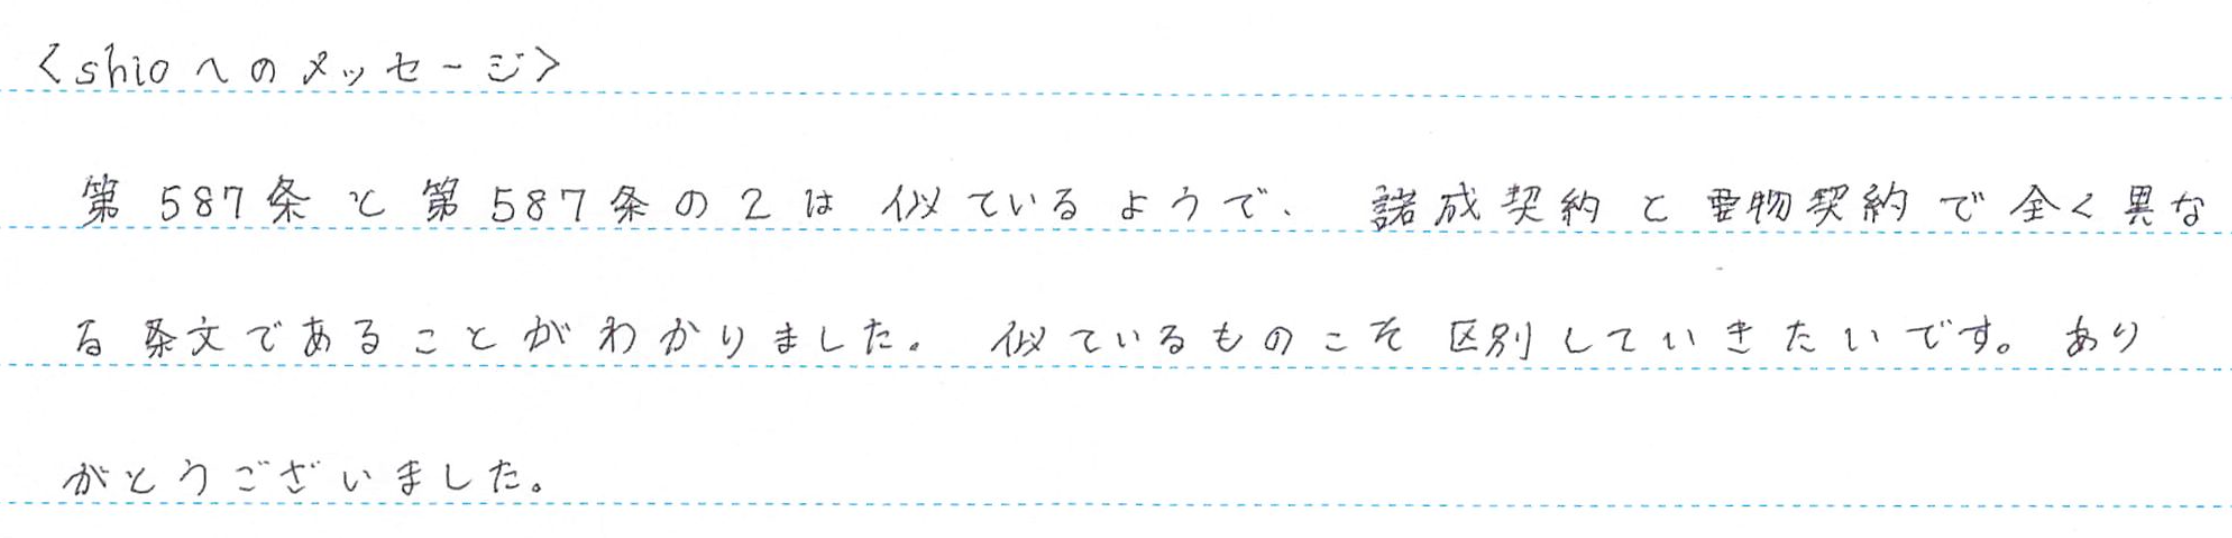 <shioへのメッセージ>
第587条と第587条の2は似ているようで、諾成契約と要物契約で全く異な
る条文であることがわかりました。似ているものこそ区別していきたいです。あり
がとうございました。